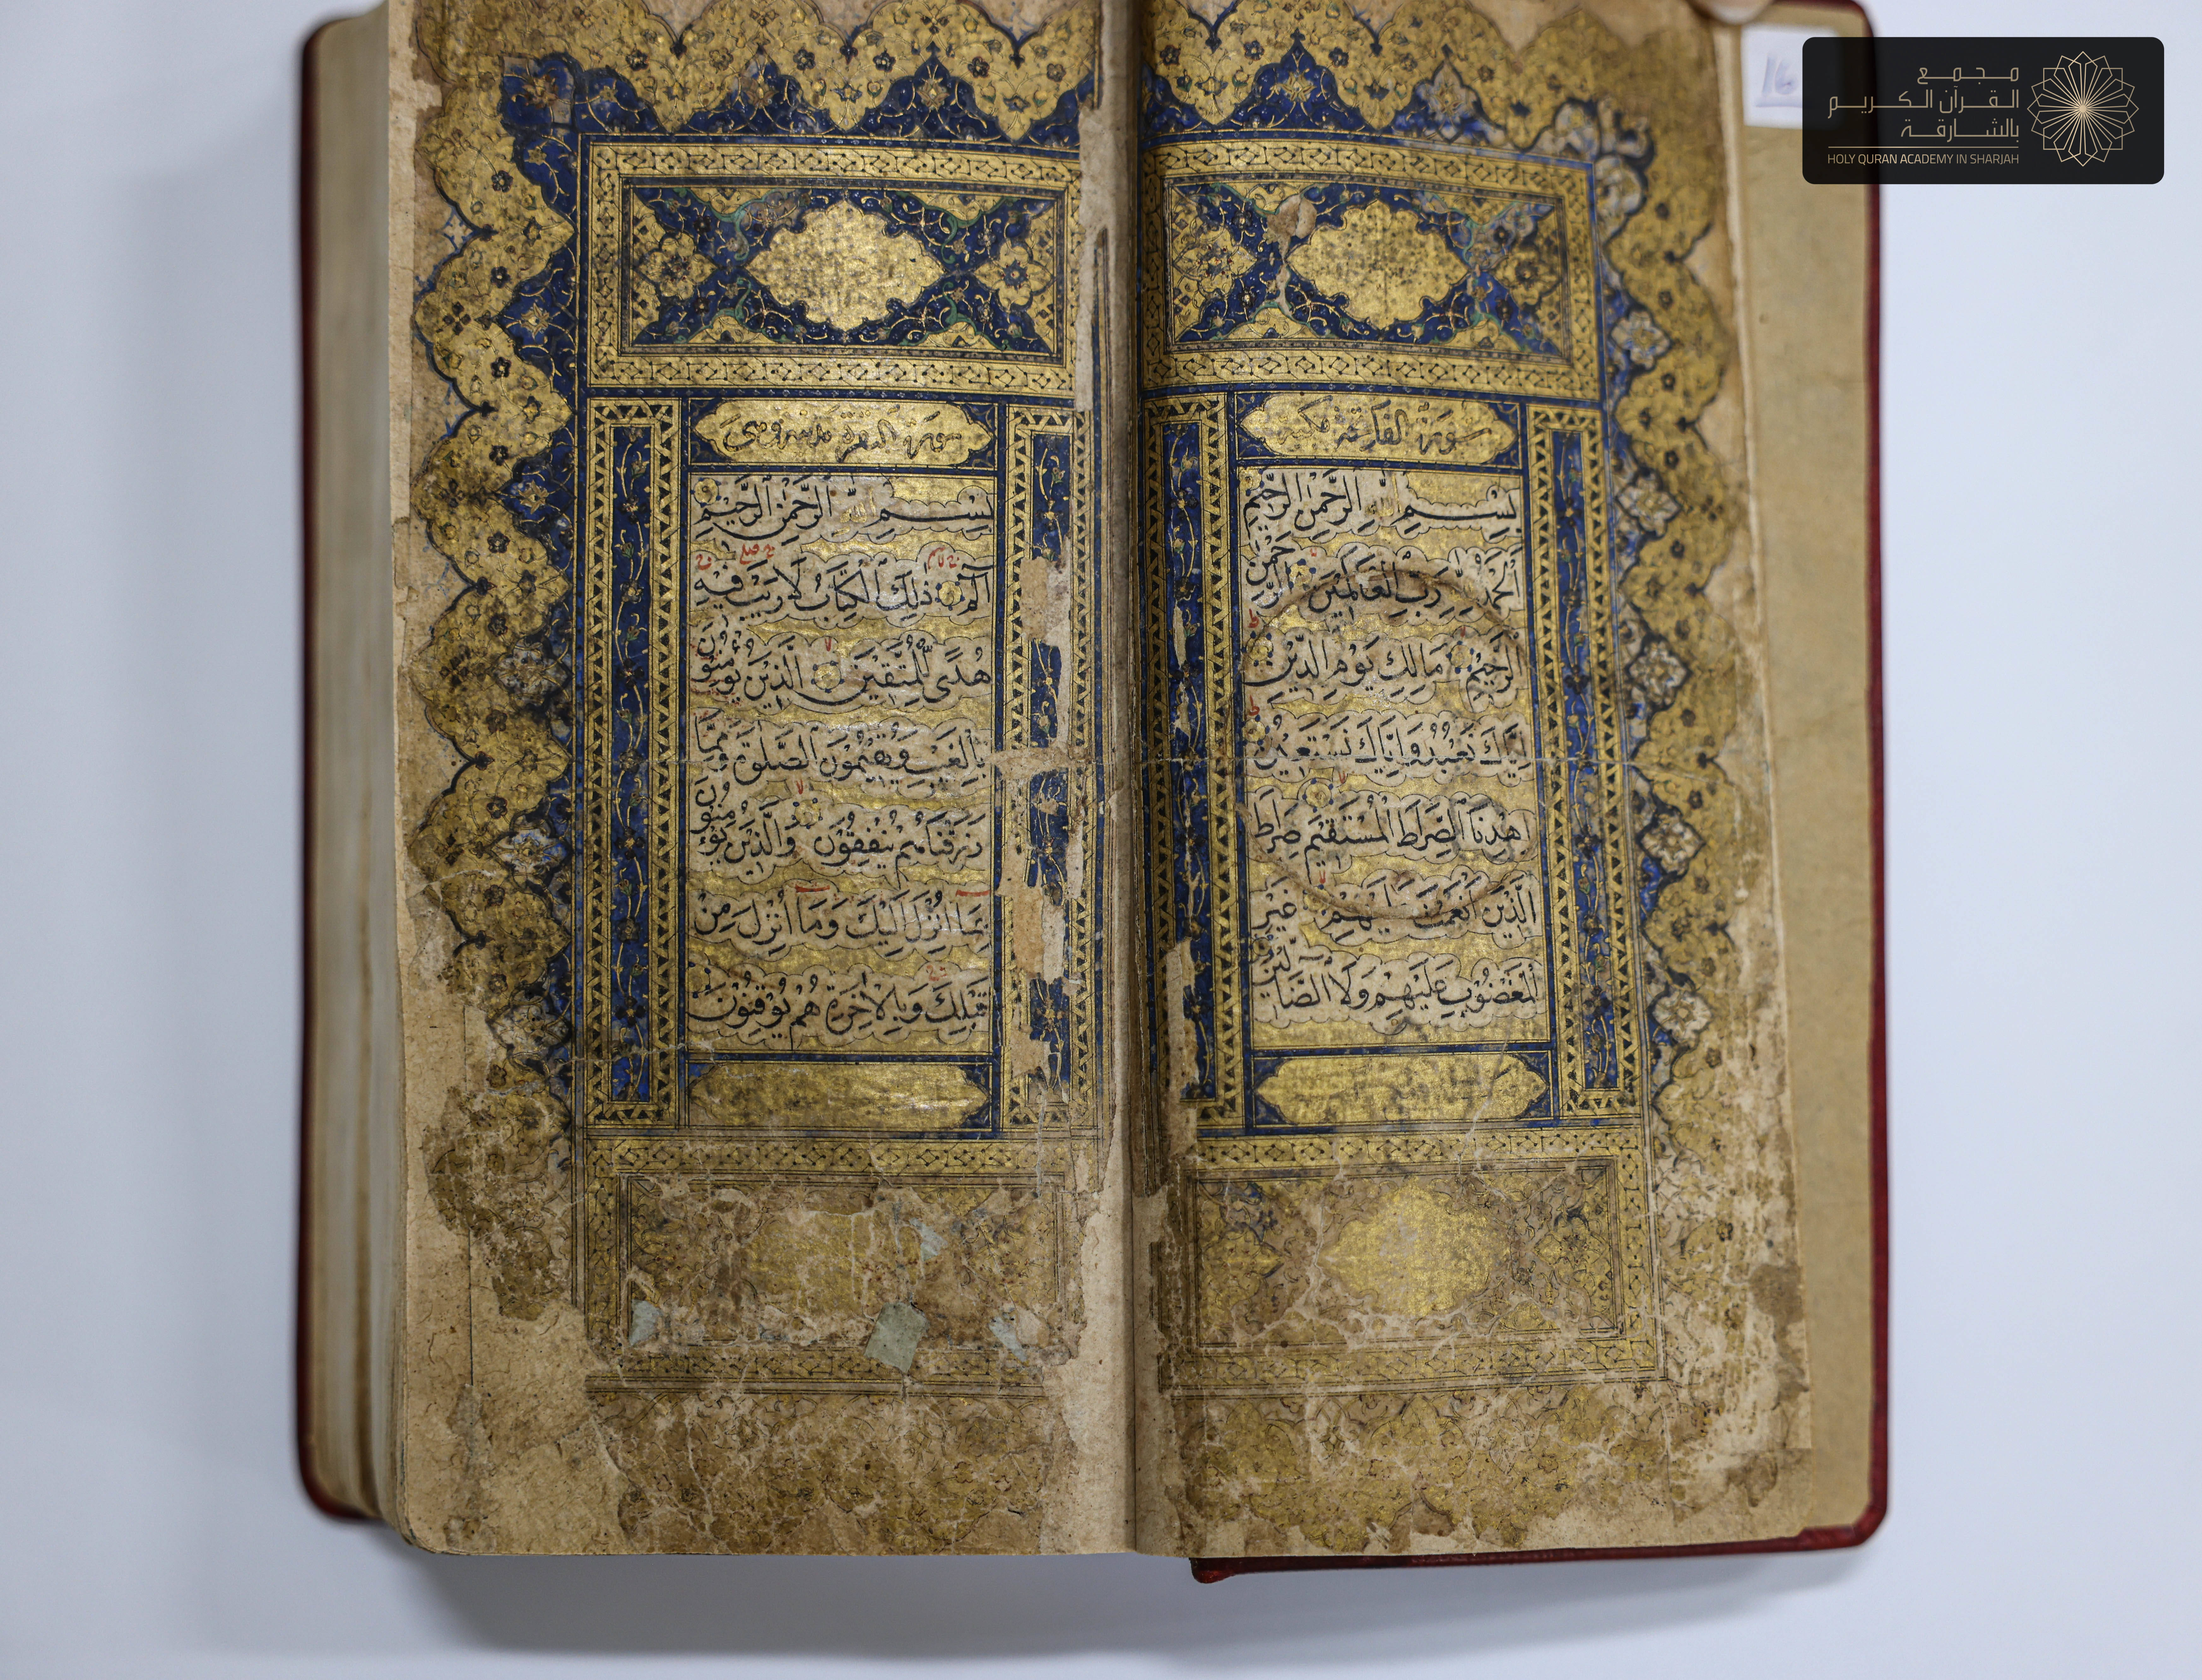 مجمع
القرآن الكريم
بالشارقة
HOLY QURAN ACADEMY IN SHARJAH
16
سورة الفاتحة مكية
بِسْمِ اللَّهِ الرَّحْمٰنِ الرَّحِيْمِ
اَلْحَمْدُ لِلَّهِ رَبِّ الْعَالَمِيْنَ الرَّحْمٰنِ
الرَّحِيْمِ مَالِكِ يَوْمِ الدِّيْنِ
اِيَّاكَ نَعْبُدُ وَاِيَّاكَ نَسْتَعِيْنُ
اِهْدِنَا الصِّرَاطَ الْمُسْتَقِيْمَ صِرَاطَ
الَّذِيْنَ اَنْعَمْتَ عَلَيْهِمْ غَيْرِ
الْمَغْضُوْبِ عَلَيْهِمْ وَلَا الضَّآلِّيْنَ
سورة البقرة
بِسْمِ اللَّهِ الرَّحْمٰنِ الرَّحِيْمِ
الٓمٓ ذٰلِكَ الْكِتَابُ لَا رَيْبَ فِيْهِ
هُدًى لِلْمُتَّقِيْنَ الَّذِيْنَ يُؤْمِنُوْنَ
بِالْغَيْبِ وَيُقِيْمُوْنَ الصَّلٰوةَ وَمِمَّا
رَزَقْنَاهُمْ يُنْفِقُوْنَ وَالَّذِيْنَ يُؤْمِنُوْنَ
بِمَا اُنْزِلَ اِلَيْكَ وَمَا اُنْزِلَ مِنْ
قَبْلِكَ وَبِالْاٰخِرَةِ هُمْ يُوْقِنُوْنَ